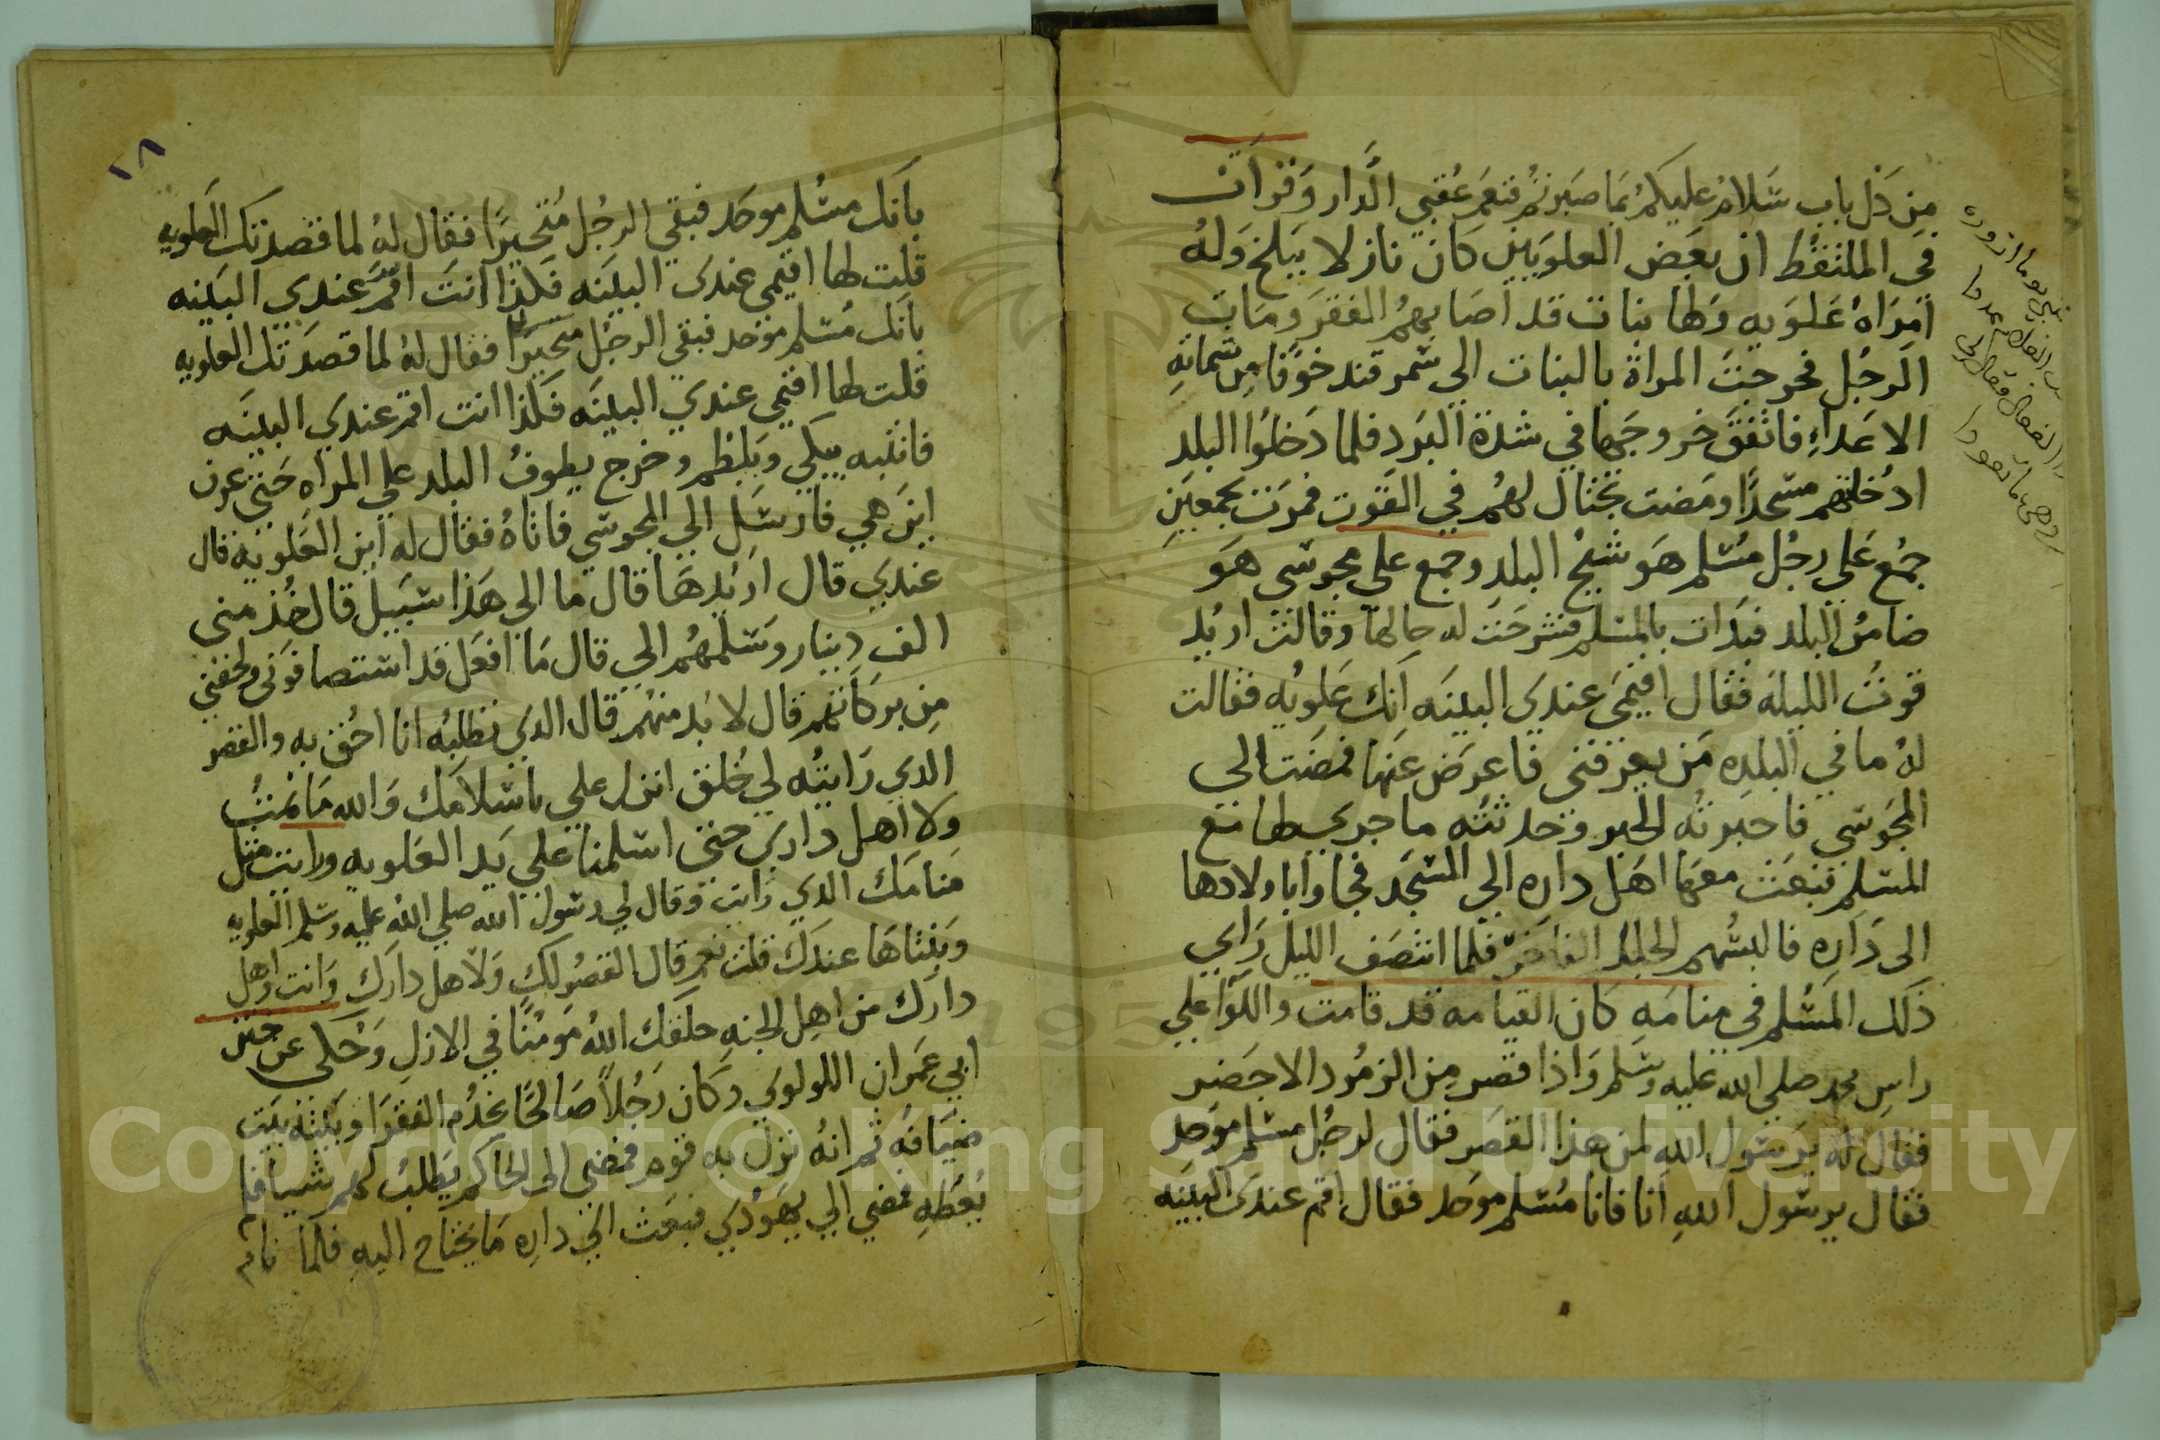 من كل باب سَلامٌ عليكمْ بمَا صَبرتمْ فنعمَ عُقبي الدَّار وَقرأت
في الملتقط ان بعض العلويين كان نازلا ببلخ وَلهُ
امرَاهْ عَلويه وَلها بنات قد اصَابهُم الفقرَ وَمَات
الرجُل فخرجتْ المراة بالبنات الي سمرقند خوفا من شماتةِ
الاعَداءِ فاتفقَ خروجَها في شدة البَردِ فلما دَخلوا البلد
ادخلتهم مسجدًا ومَضت تحتال لهُم في القوت فمرَت بجمعَينِ
جمْع عَلي رجُل مُسْلم هَو شيخْ البلد وجمع على مجوسى هَو
ضامنُ البلد فبَدات بالمسْلم فشرحَتَ له حالهاَ وقالت اريد
قوتْ الليلة فقال اقيمَي عندى البينَه انك عَلويه فقالت
لهُ ما في البلده مَن يعرفنى فاعرَض عَنهَا فمضَت الي
المجَوسي فاخبرته الخبر وَحدثته ما جرى لها مع
المسْلم فبعَث معَها اهَل داره الي المسْجَد فجاوا باولادها
الى دَاره فالبسُهم الحلل الفاخَرة فلما انتصَف الليل رَاي
ذَلك المَسْلم في منامَهِ كان القيامه قد قامت واللوَا علي
راسِ محمد صلي الله عليه وسَلم وَاذا قصر من الزمُرد الاخضِر
فقال له يرسُول الله لمن هذا القصَر فقال لرجُل مسْلم موَحد
فقال يرسُول الله انا فانا مُسْلم موَحد فقال اقم عندى البينَه
١٨
بانَك مسُلم موحَد فبقي الرجُل مُتحيرًا فقال لهُ لما قصدتكَ العَلويه
قلت لها اقيمى عندى البينَه فكذا انتَ اقمْ عندي البَينه
بانَك مُسْلم موَحد فبقي الرجُل متحيرًا فقال لهُ لما قصدَتك العلويه
قلت لها اقيمي عندي البينَه فكذا انت اقم عندي البينَه
فانتبه يبكي وَيلطم وخرج يطوفُ البلد علي المراه حَتى عرف
اينَ هي فارسَل الي المجوسي فاتاهُ فقال له اين العَلويه قال
عندي قال اريدهَا قال ما الي هَذا سَبيل قال خُذ منى
الف دينار وسَلمهُم الي قال مَا افعَل قد استضافوَني ولحقني
مِن بركاتهم قال لا بُد منهُم قال الذي تطلبُه انا احُق به والقصر
الدي رَايتُه لي خُلق اتدل علي باسْلامَك وَالله مَا نمتُ
وَلا اهل داري حتى اسلمنا علي يَد العَلويه ورايت مثل
منامَك الدي رَايت وقال لي رسُول الله صلي الله عليه وسَلم العلويه
وَبناتهَا عندكَ قلت نعم قال القصُر لك وَلاهل دارَك وَانت وَاهل
دارَك من اهل الجنه خلقك اللهُ مؤمنًا في الازلِ وَحُكى عن
ابي عمَران اللولوي وَكان رَجُلاً صَالحًا يخدُم الفقرَا وبَيته بيَت
ضيَافَه ثم انهُ نزل به قوَم فمضي الى الحاكم يَطلبُ لهم شيا فلم
يُعطهِ فمضي الي يهَوُدي فبعَث الي داره مَا يحتاح اليهِ فلمَا نام
Copyright © King Saud University